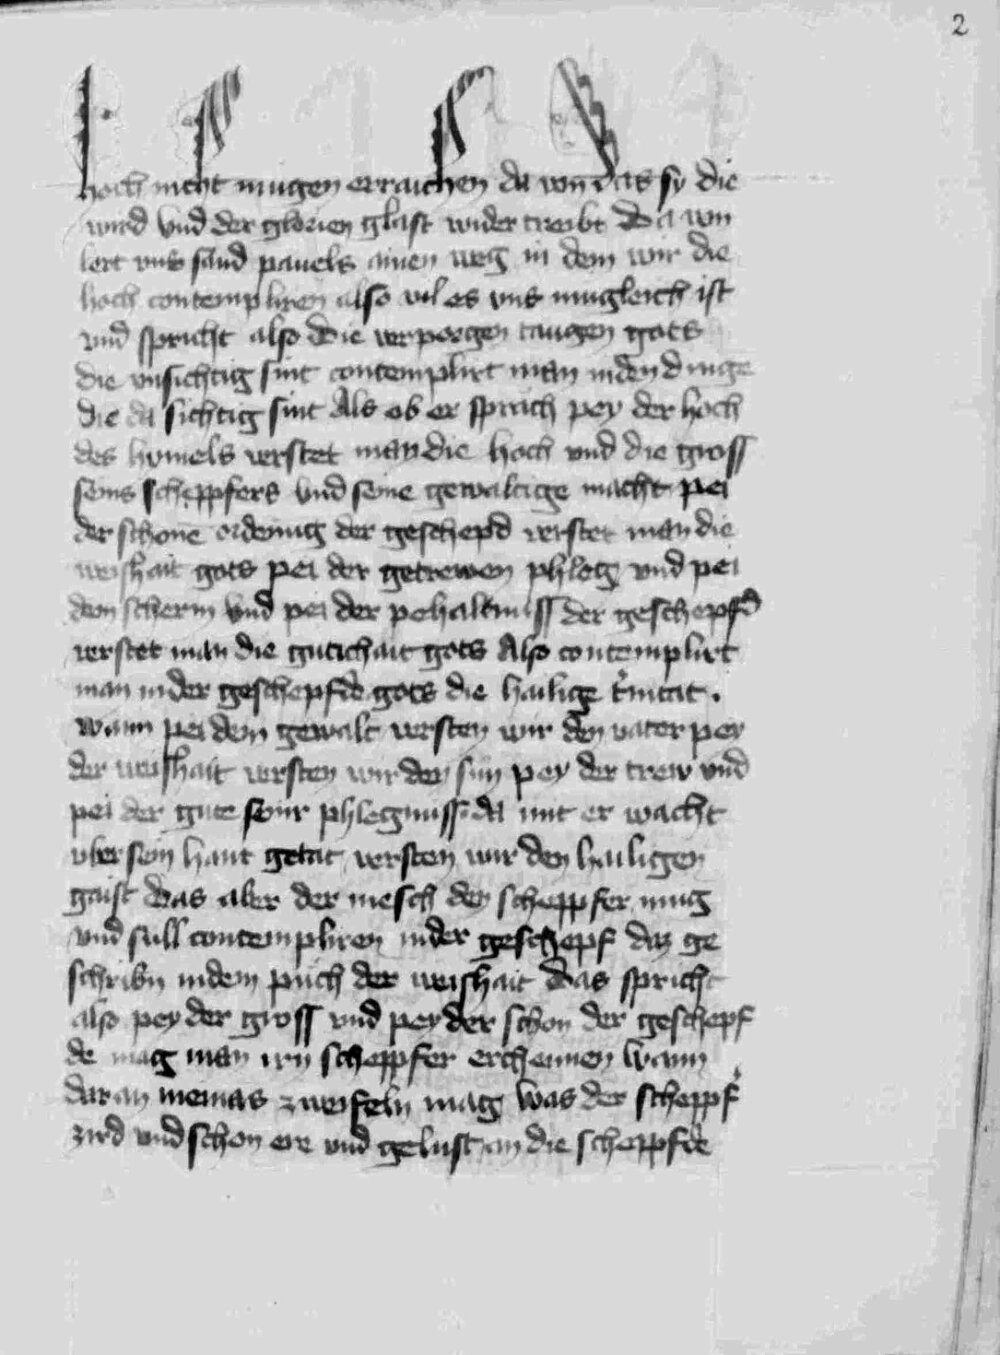 2
hoch nicht mugen erraichen da von das sy die
wird vnd der glorien glast wider treibt Da von
lert vns sand pauels ainen weg in dem wir die
hoch contempliren also vil es vns mugleich ist
vnd spricht also Die verporgen taugen gots
die vnsichtig sint contemplirt man in den dinge
die da sichtig sint Als ob er sprach pey der hoch
des hymels verstet man die hoch vnd die gross
seins scheppfers vnd seine gewaltige macht pei
der schone ordenung der geschepd verstet man die
weishait gots pei der getrewen phleg vnd pei
dem scherm vnd pei der pehaltnuss der geschepfd
verstet man die gutichait gots Also contemplirt
man in der geschepfde gots die hailige trinitat .
wann pei dem gewalt versten wir den vater pey
der weishait versten wir den sun pey der trew vnd
pei der gute seinr phlegnuss da mit er wacht
vber sein hant getat versten wir den hailigen
gaist Das aber der mesch den scheppfer mug
vnd sull contempliren in der geschepf daz ge
schribn in dem puch der weishait Das spricht
also pey der gross vnd pey der schon der geschepf
de mag man irn scheppfer erchennen wann
dar an niemas zweifeln mag was der scheppf
zird vnd schon ere vnd gelust an die scheppfde